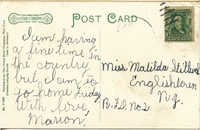 POST CARD
I am having
a fine time in
the country
but I am to
go home Friday
With love,
Marion,
Miss Matilda
Englishtown
N.J.
R.F.D. No 2